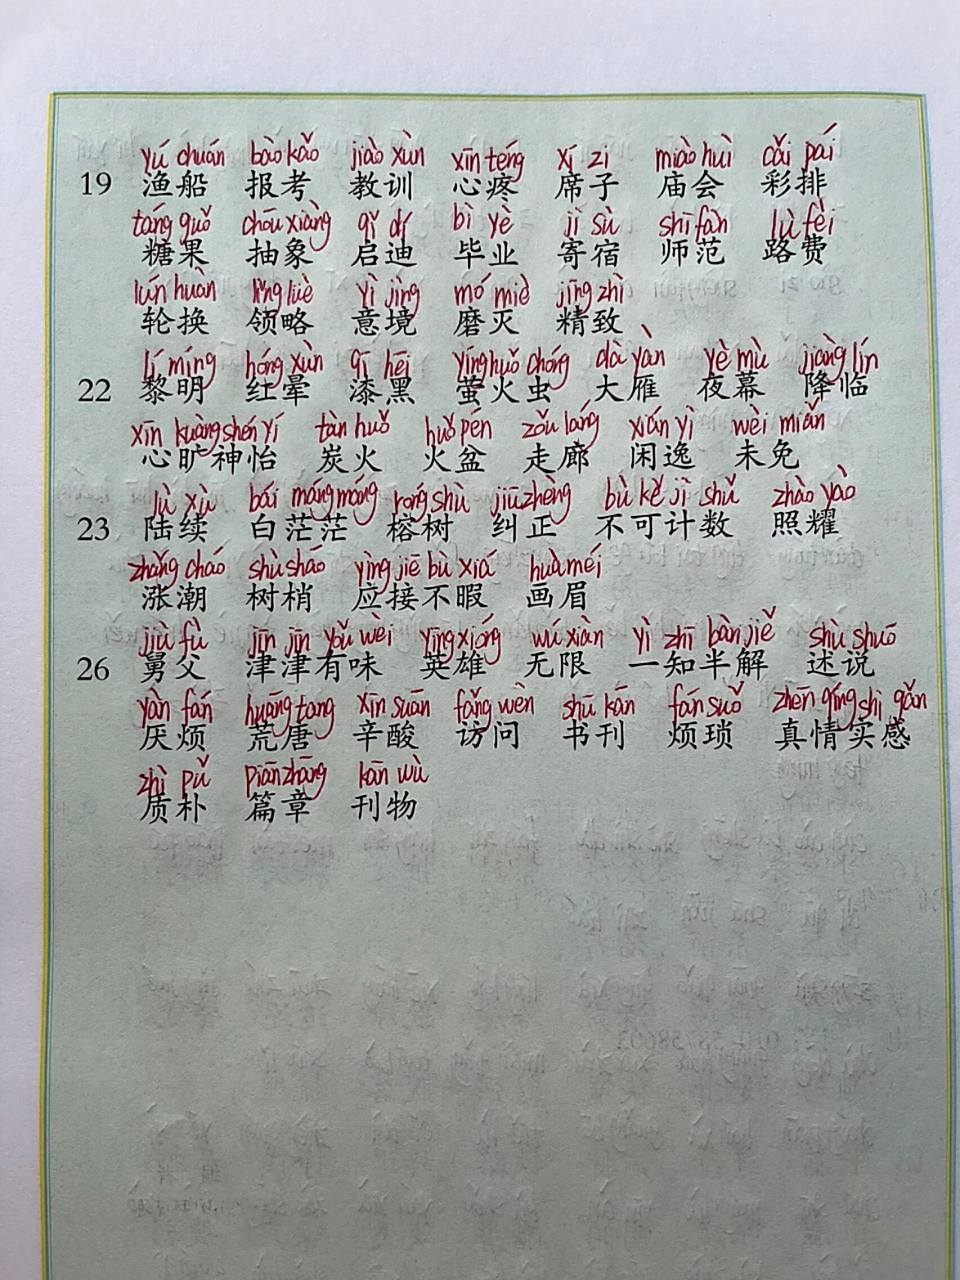 yú chuán bào kǎo jiào xùn xīn téng xí zi miào huì cǎi pái
19 渔船 报考 教训 心疼 席子 庙会 彩排
táng guǒ chōu xiàng qǐ dí bì yè jì sù shī fàn lù fèi
糖果 抽象 启迪 毕业 寄宿 师范 路费
lún huàn lǐng lüè yì jìng mó miè jīng zhì
轮换 领略 意境 磨灭 精致
lí míng hóng xùn qī hēi yíng huǒ chóng dà yàn yè mù jiàng lín
22 黎明 红晕 漆黑 萤火虫 大雁 夜幕 降临
xīn kuàng shén yí tàn huǒ huǒ pén zǒu láng xián yì wèi miǎn
心旷神怡 炭火 火盆 走廊 闲逸 未免
lù xù bái máng máng róng shù jiū zhèng bù kě jì shǔ zhào yào
23 陆续 白茫茫 榕树 纠正 不可计数 照耀
zhǎng cháo shù shāo yìng jiē bù xiá huà méi
涨潮 树梢 应接不暇 画眉
jiù fù jīn jīn yǒu wèi yīng xióng wú xiàn yì zhī bàn jiě shù shuō
26 舅父 津津有味 英雄 无限 一知半解 述说
yàn fán huāng tang xīn suān fǎng wèn shū kān fán suǒ zhēn qíng shí gǎn
厌烦 荒唐 辛酸 访问 书刊 烦琐 真情实感
zhì pǔ piān zhāng kān wù
质朴 篇章 刊物